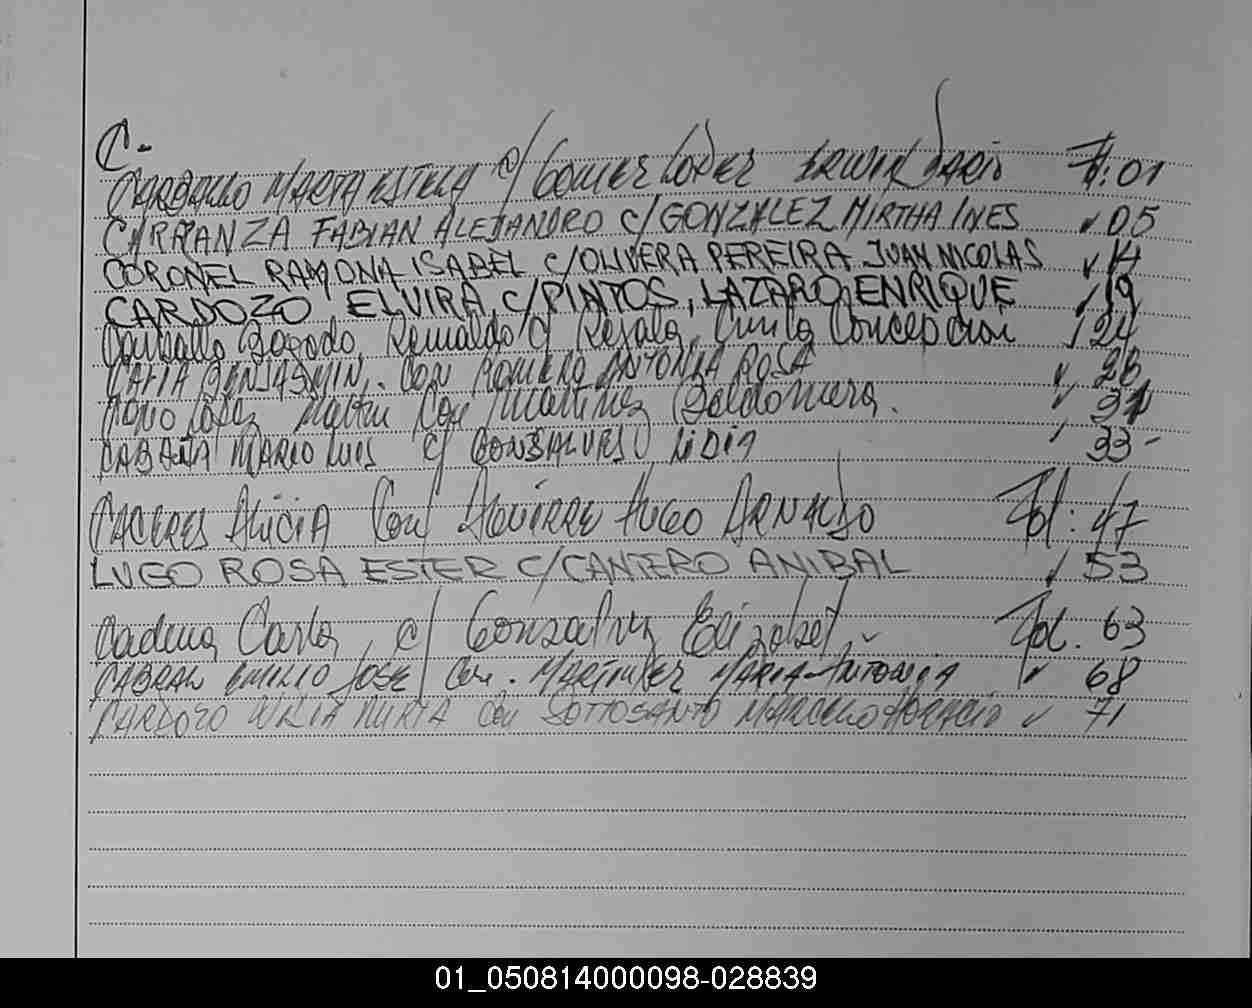 C.-
CARBALLO MARTA ESTELA c/ GOMEZ LOPEZ ERWIN DARIO F: 01
CARRANZA FABIAN ALEJANDRO C/ GONZALEZ MIRTHA INES " 05
CORONEL RAMONA ISABEL C/OLIVERA PEREIRA JUAN NICOLAS " 14
CARDOZO ELVIRA, C/PINTOS, LAZARO ENRIQUE " 19
Carballo Bogado, Reinaldo c/ Concepcion " 24
BENJAMIN. CON ROMERO ANTONIA ROSA " 28
Lopez Con Martinez Baldomera. " 31
CABAÑA MARIO LUIS c/ GONSALVES LIDIA " 33-
CACERES ALICIA Con AGUIRRE HUGO ARNALDO Fol: 47
LUGO ROSA ESTER C/CANTERO ANIBAL " 53
Cadena Carlos, c/ Gonzalez Elizabet, Fol. 63
CABRAL EMILIO JOSE Con. MARTINEZ MARIA ANTONIA " 68
CARDOZO MIRTA Con SOTTOSANTO MARCELO HORACIO " 71
01_050814000098-028839